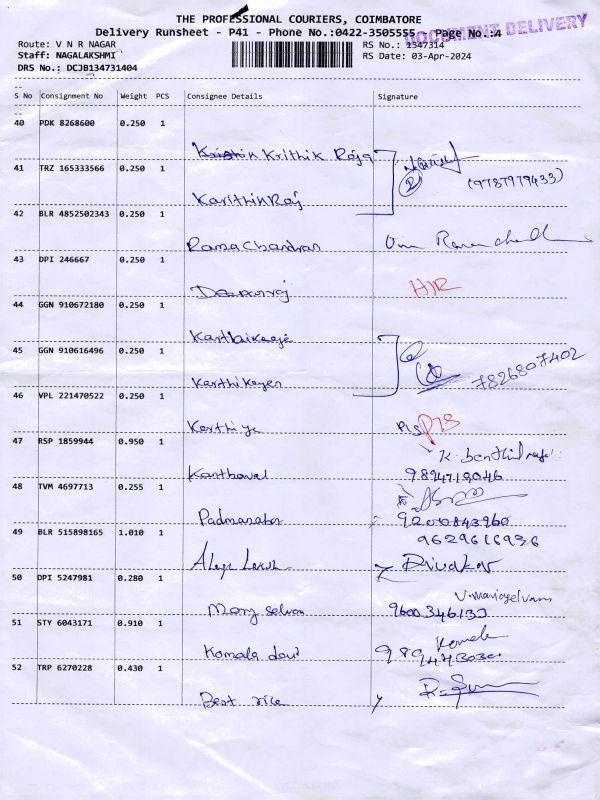 THE PROFESSIONAL COURIERS, COIMBATORE
Delivery Runsheet - P41 - Phone No.:0422-3505555 Page No.:4
DOCUMENT DELIVERY
Route: V N R NAGAR RS No.: 1347314
Staff: NAGALAKSHMI RS Date: 03-Apr-2024
DRS No.: DCJB134731404
S No Consignment No Weight PCS Consignee Details Signature
40 PDK 8268600 0.250 1
Krithik Raja
41 TRZ 165333566 0.250 1
(9787979433)
KarithinRaj
42 BLR 4852502343 0.250 1
Rama Chandran
43 DPI 246667 0.250 1
44 GGN 910672180 0.250 1
45 GGN 910616496 0.250 1
7826807402
Karthikeyen
46 VPL 221470522 0.250 1
Karthiye PTS
47 RSP 1859944 0.950 1
Kanthaval 9894719046
48 TVM 4697713 0.255 1
9200843960
49 BLR 515898165 1.010 1
9629616936
Divakar
50 DPI 5247981 0.280 1
Mary selvan
51 STY 6043171 0.910 1
Komala
Komala devi
52 TRP 6270228 0.430 1
Best rice